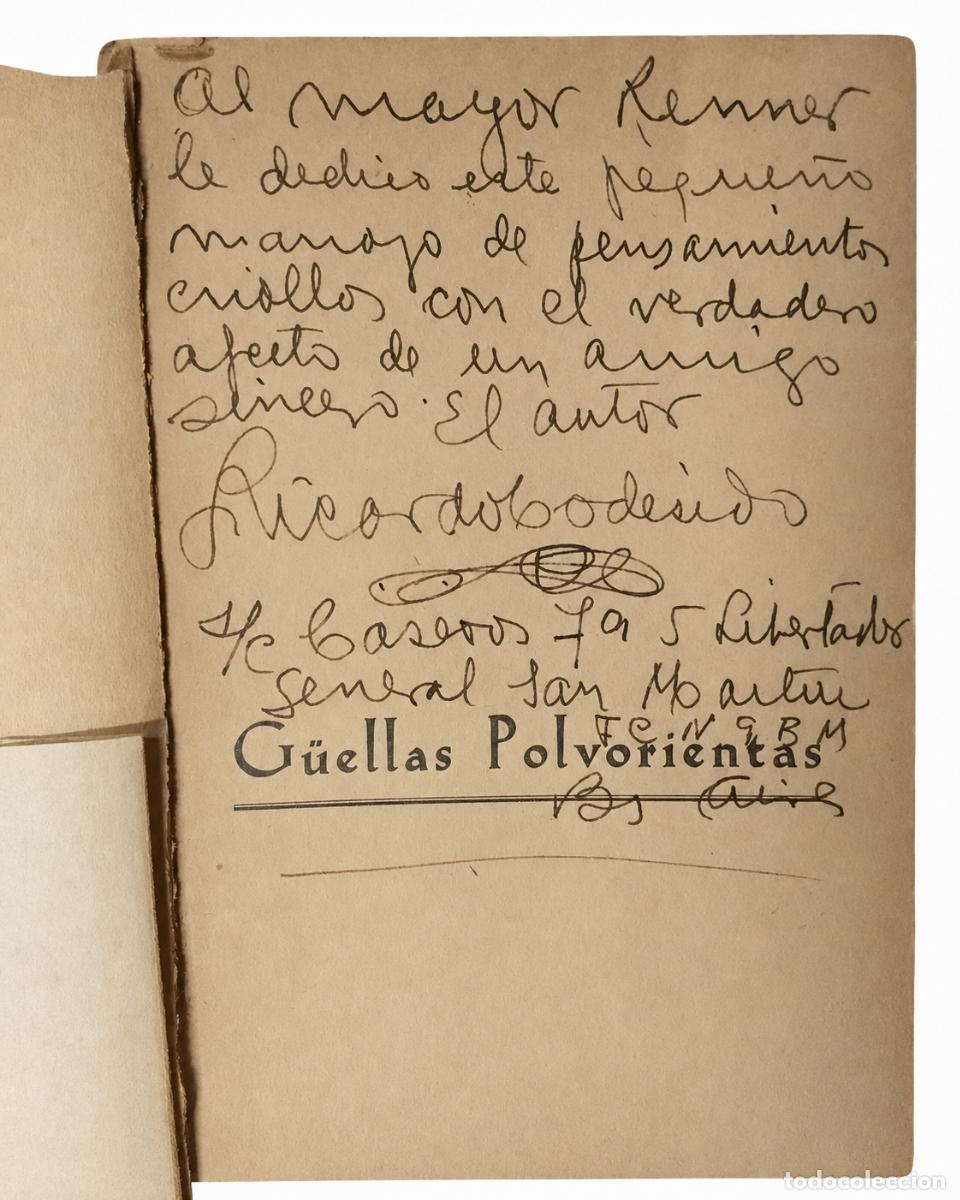 Al mayor Renner
le dedico este pequeño
manojo de pensamientos
criollos con el verdadero
afecto de un amigo
sincero. El autor
Ricardo Codesido
s/c Caseros 795 Libertador
General San Martin
F C N G B M
Güellas Polvorientas
Bs Aires
todocoleccion